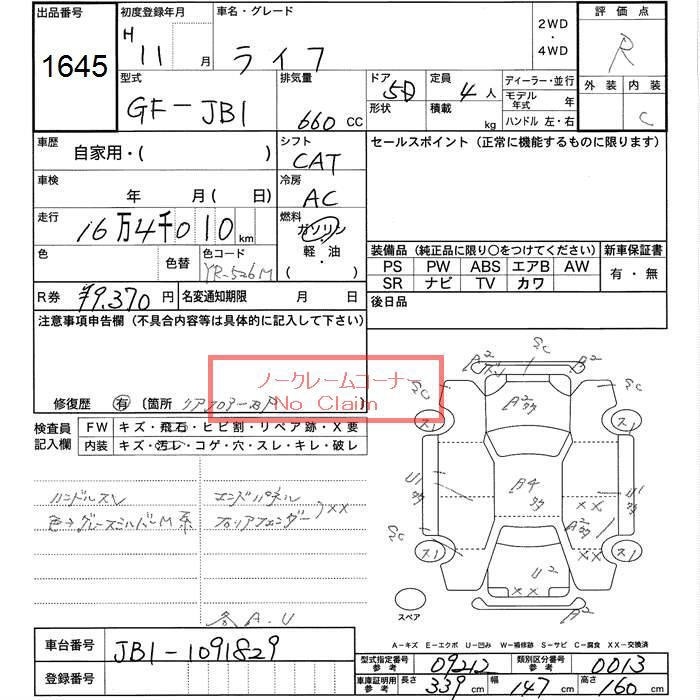 出品番号 初度登録年月 車名・グレード 2WD ・ 4WD 評価点
1645 H 11 月 ライフ R
型式 排気量 ドア 形状 定員 積載 ディーラー・並行 外装 内装
GF-JB1 660 CC 5D 4人 kg モデル年式 年 C
ハンドル 左・右
車歴 自家用・( ) シフト CAT セールスポイント (正常に機能するものに限ります)
車検 年 月( 日) 冷房 AC
走行 16万4千010km 燃料 ガソリン 軽・油 ( )
色 色替 色コード YR-526M 装備品 (純正品に限り○をつけてください) 新車保証書
PS PW ABS エアB AW 有・無
SR ナビ TV カワ
R券 ¥9,370円 名変通知期限 月 日 後日品
注意事項申告欄 (不具合内容等は具体的に記入して下さい)
ノークレームコーナー
No Claim
修復歴 有 〔箇所 リアフロアー
検査員記入欄 FW キズ・飛石・ヒビ割・リペア跡・X要
内装 キズ・汚レ・コゲ・穴・スレ・キレ・破レ
ハンドルスレ エンドパネル
XX
A.U
SC
A2
SC
B2
SC
A2
ス1
ス1
U1
A4
U1
XX
A2
SC
ス1
ス1
SC
U2
XX
A2
スペア
A-キズ E-エクボ U-凹み W-補修跡 S-サビ C-腐食 XX-交換済
車台番号 JB1-1091829
登録番号
型式指定番号 参考 09212 類別区分番号 参考 0013
車庫証明用 参考 長さ 339cm 幅 147cm 高さ 160cm